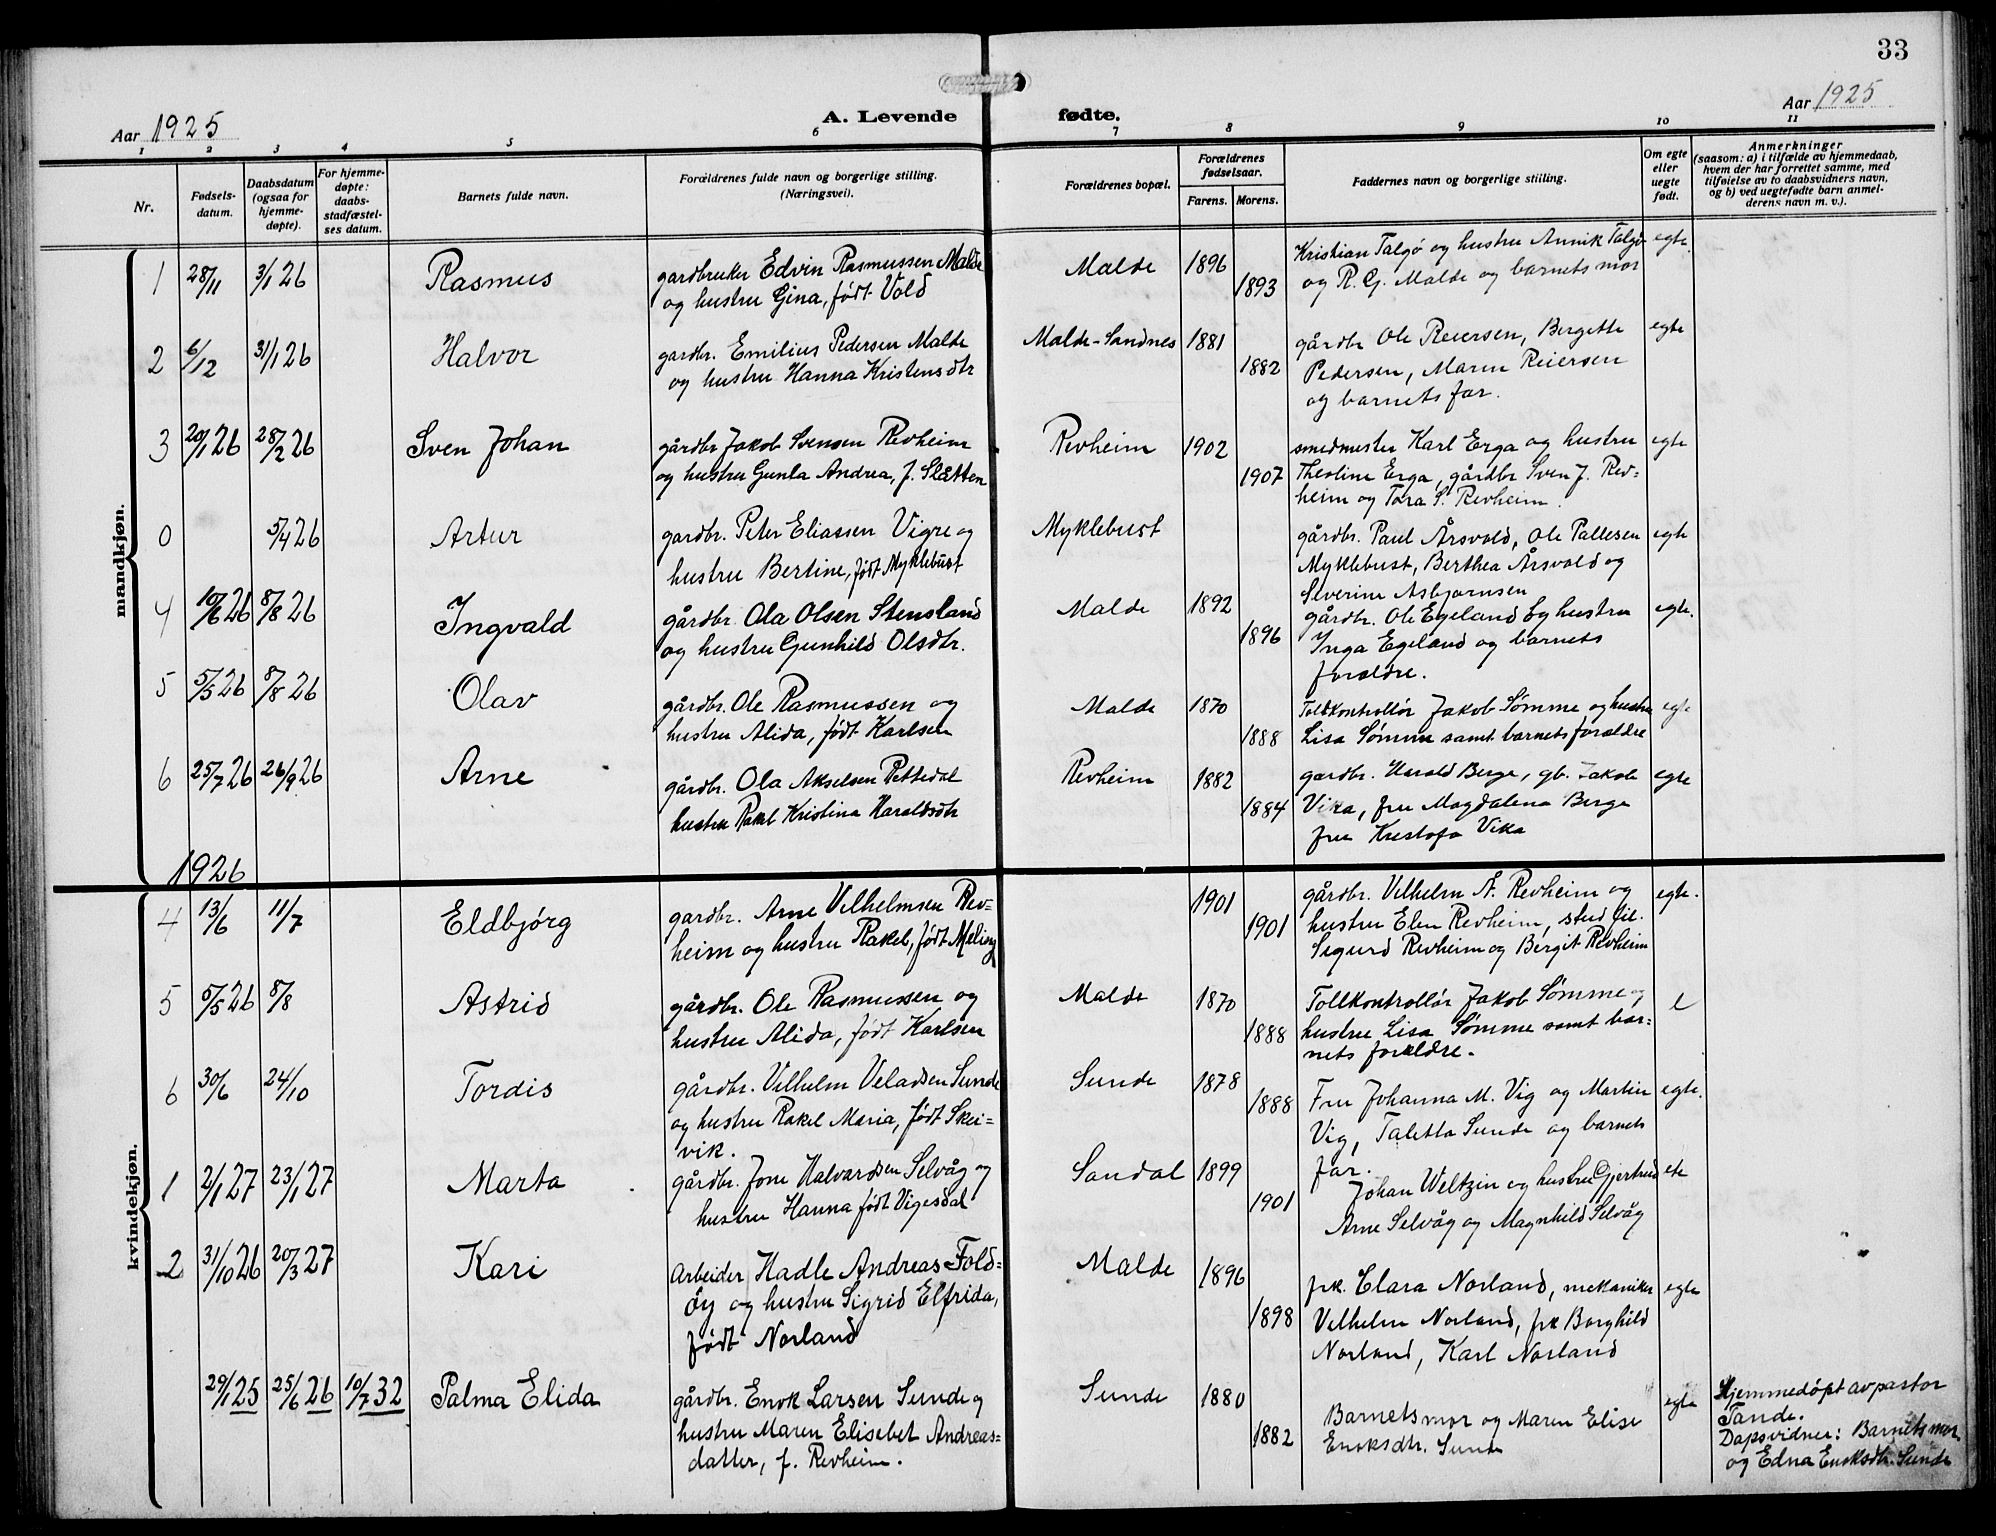 33
Aar 1925
A. Levende
fødte.
Aar 1925
1 2 3 4 5 6 7 8 9 10 11
Nr.
Fødsels-
datum.
Daabsdatum
(ogsaa for
hjemme-
døpte).
For hjemme-
døpte:
daabs-
stadfæstel-
ses datum.
Barnets fulde navn.
Forældrenes fulde navn og borgerlige stilling.
(Næringsvei).
Forældrenes bopæl.
Forældrenes
fødselsaar.
Farens. Morens.
Faddernes navn og borgerlige stilling.
Om egte
eller
uegte
født.
Anmerkninger
(saasom: a) i tilfælde av hjemmedaab,
hvem der har forrettet samme, med
tilføielse av to daabsvidners navn,
og b) ved uegtefødte barn anmel-
derens navn m. v.).
mandkjøn.
1 28/11 3/1 26 Rasmus
gardbruker Edvin Rasmussen Malde
og hustru Gina, født Vold
Malde 1896
1893
Kristian Talgø og hustru Annik Talgø
og R. G. Malde og barnets mor
egte
2 6/12 31/1 26 Halvor
gardbr. Emilius Pedersen Malde
og hustru Hanna Kristensdtr
Malde-Sandnes 1881
1882
gårdbr Ole Reiersen, Bergette
Pedersen, Maren Reiersen
og barnets far.
egte
3 20/1 26 28/2 26 Sven Johan
gårdbr Jakob Svensen Revheim
og hustru Gunla Andrea, f. Sletten
Revheim 1902
1907
smedmester Karl Erga og hustru
Theoline Erga, gårdbr Sven J. Rev=
heim og Tora S. Revheim.
egte
0 5/4 26 Artur
gardbr. Peter Eliassen Vigre og
hustru Bertine, født Myklebust
Myklebust
gårdbr. Paul Årsvold, Ole Pallesen
Myklebust, Berthea Årsvold og
Severine Asbjørnsen
egte
4 10/6 26 8/8 26 Ingvald
gårdbr. Ola Olsen Stensland
og hustru Gunhild Olsdtr.
Malde 1892
1896
gårdbr. Ole Egeland og hustru
Inga Egeland og barnets
forældre.
egte.
5 5/5 26 8/8 26 Olav
gårdbr. Ole Rasmussen og
hustru Alida, født Karlsen
Malde 1870
1888
Toldkontrollør Jakob Sømme og hustru
Lisa Sømme samt barnets forældre
egte
6 25/7 26 26/9 26 Arne
gårdbr. Ola Akselsen Pettedal
hustru Rakel Kristina Haraldsdtr
Revheim 1882
1884
gardbr. Harald Berge, gb. Jakob
Vika, fru Magdalena Berge
fru Kristofa Vika
egte
1926
kvindekjøn.
4 13/6 11/7 Eldbjørg
gardbr. Arne Vilhelmsen Rev=
heim og hustru Rakel, født Meling
1901
1901
gårdbr. Vilhelm Å. Revheim og
hustru Elen Revheim, stud fil.
Sigurd Revheim og Bergit Revheim
egte.
5 5/5 26 8/8 Astrid
gårdbr. Ole Rasmussen og
hustru Alida, født Karlsen
Malde 1870
1888
Tollkontrollør Jakob Sømme og
hustru Lisa Sømme samt bar=
nets forældre.
e
6 30/6 24/10 Tordis
gårdbr. Vilhelm Veladsen Sunde
og hustru Rakel Maria, født Skei=
vik.
Sunde 1878
1888
Fru Johanna M. Vig og Martin
Vig, Taletta Sunde og barnets
far.
egte.
1 2/1 27 23/1 27 Marta
gårdbr. Jone Halvardsen Selvåg og
hustru Hanna født Vigesdal
Sandal 1899
1901
Johan Weltzin og hustru Gjertrud
Arne Selvåg og Magnhild Selvåg
ete
2 31/10 26 20/3 27 Kari
Arbeider Hadle Andreas Fold=
øy og hustru Sigrid Elfrida,
født Norland
Malde 1896
1898
frk. Clara Norland, mekaniker
Vilhelm Norland, frk Borghild
Norland, Karl Norland
egte
29/1 25 25/6 26 10/7 32 Palma Elida
gårdbr. Enok Larsen Sunde og
hustru Maren Elisebet Andreas=
datter, f. Revheim.
Sunde 1880
1882
Barnets mor og Maren Elise
Enoksdtr. Sunde
egte
Hjemmedøpt av pastor
Tande.
Dåpsvidner: Barnets mor
og Edna Enoksdtr. Sunde